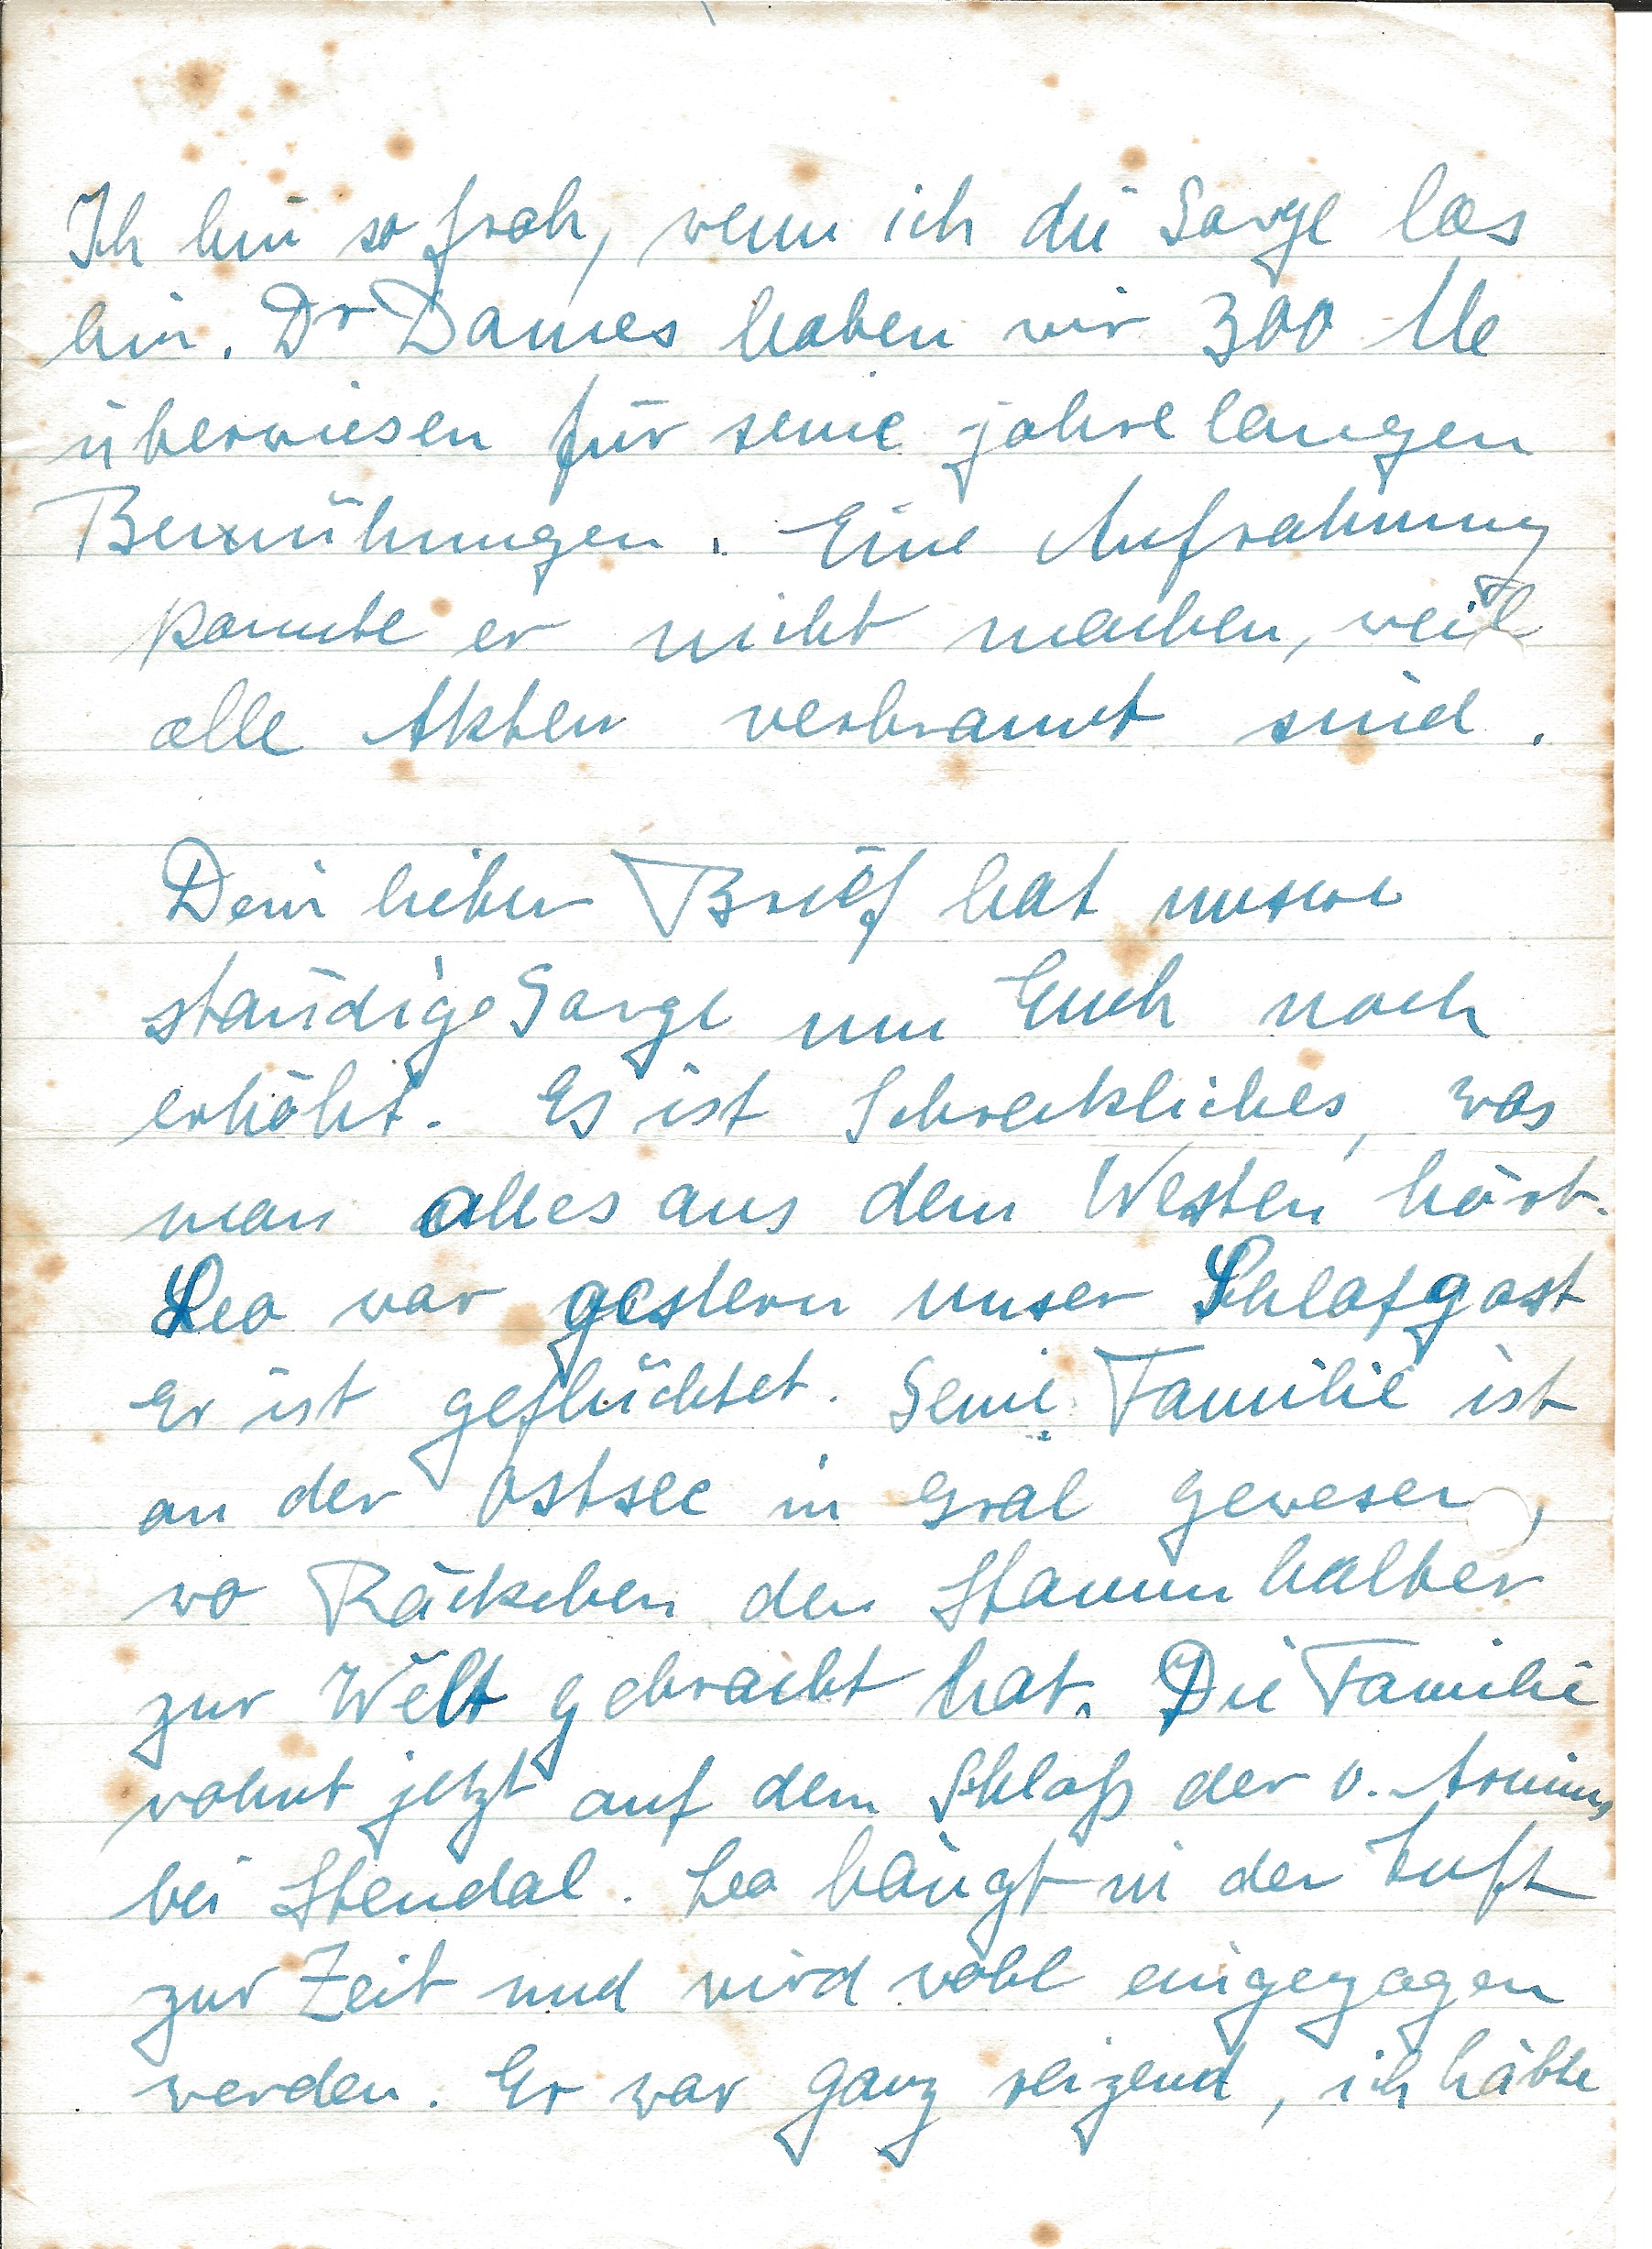 Ich bin so froh, wenn ich die Sorge los
bin. Dr Dames haben wir 300 M
überwiesen für seine jahrelangen
Bemühungen. Eine Aufrahmung
konnte er nicht machen, weil
alle Akten verbrannt sind.
Dein lieber Brief hat unsere
ständige Sorge um Euch noch
erhöht. Es ist Schreckliches, was
man alles aus dem Westen hört.
Leo war gestern unser Schlafgast
Er ist geflüchtet. Seine Familie ist
an der Ostsee in Gral gewesen,
wo den Stammhalter
zur Welt gebracht hat. Die Familie
wohnt jetzt auf dem Schloß der v. Arnims
bei Stendal. Leo hängt in der Luft
zur Zeit und wird wohl eingezogen
werden. Er war ganz reizend, ich hätte